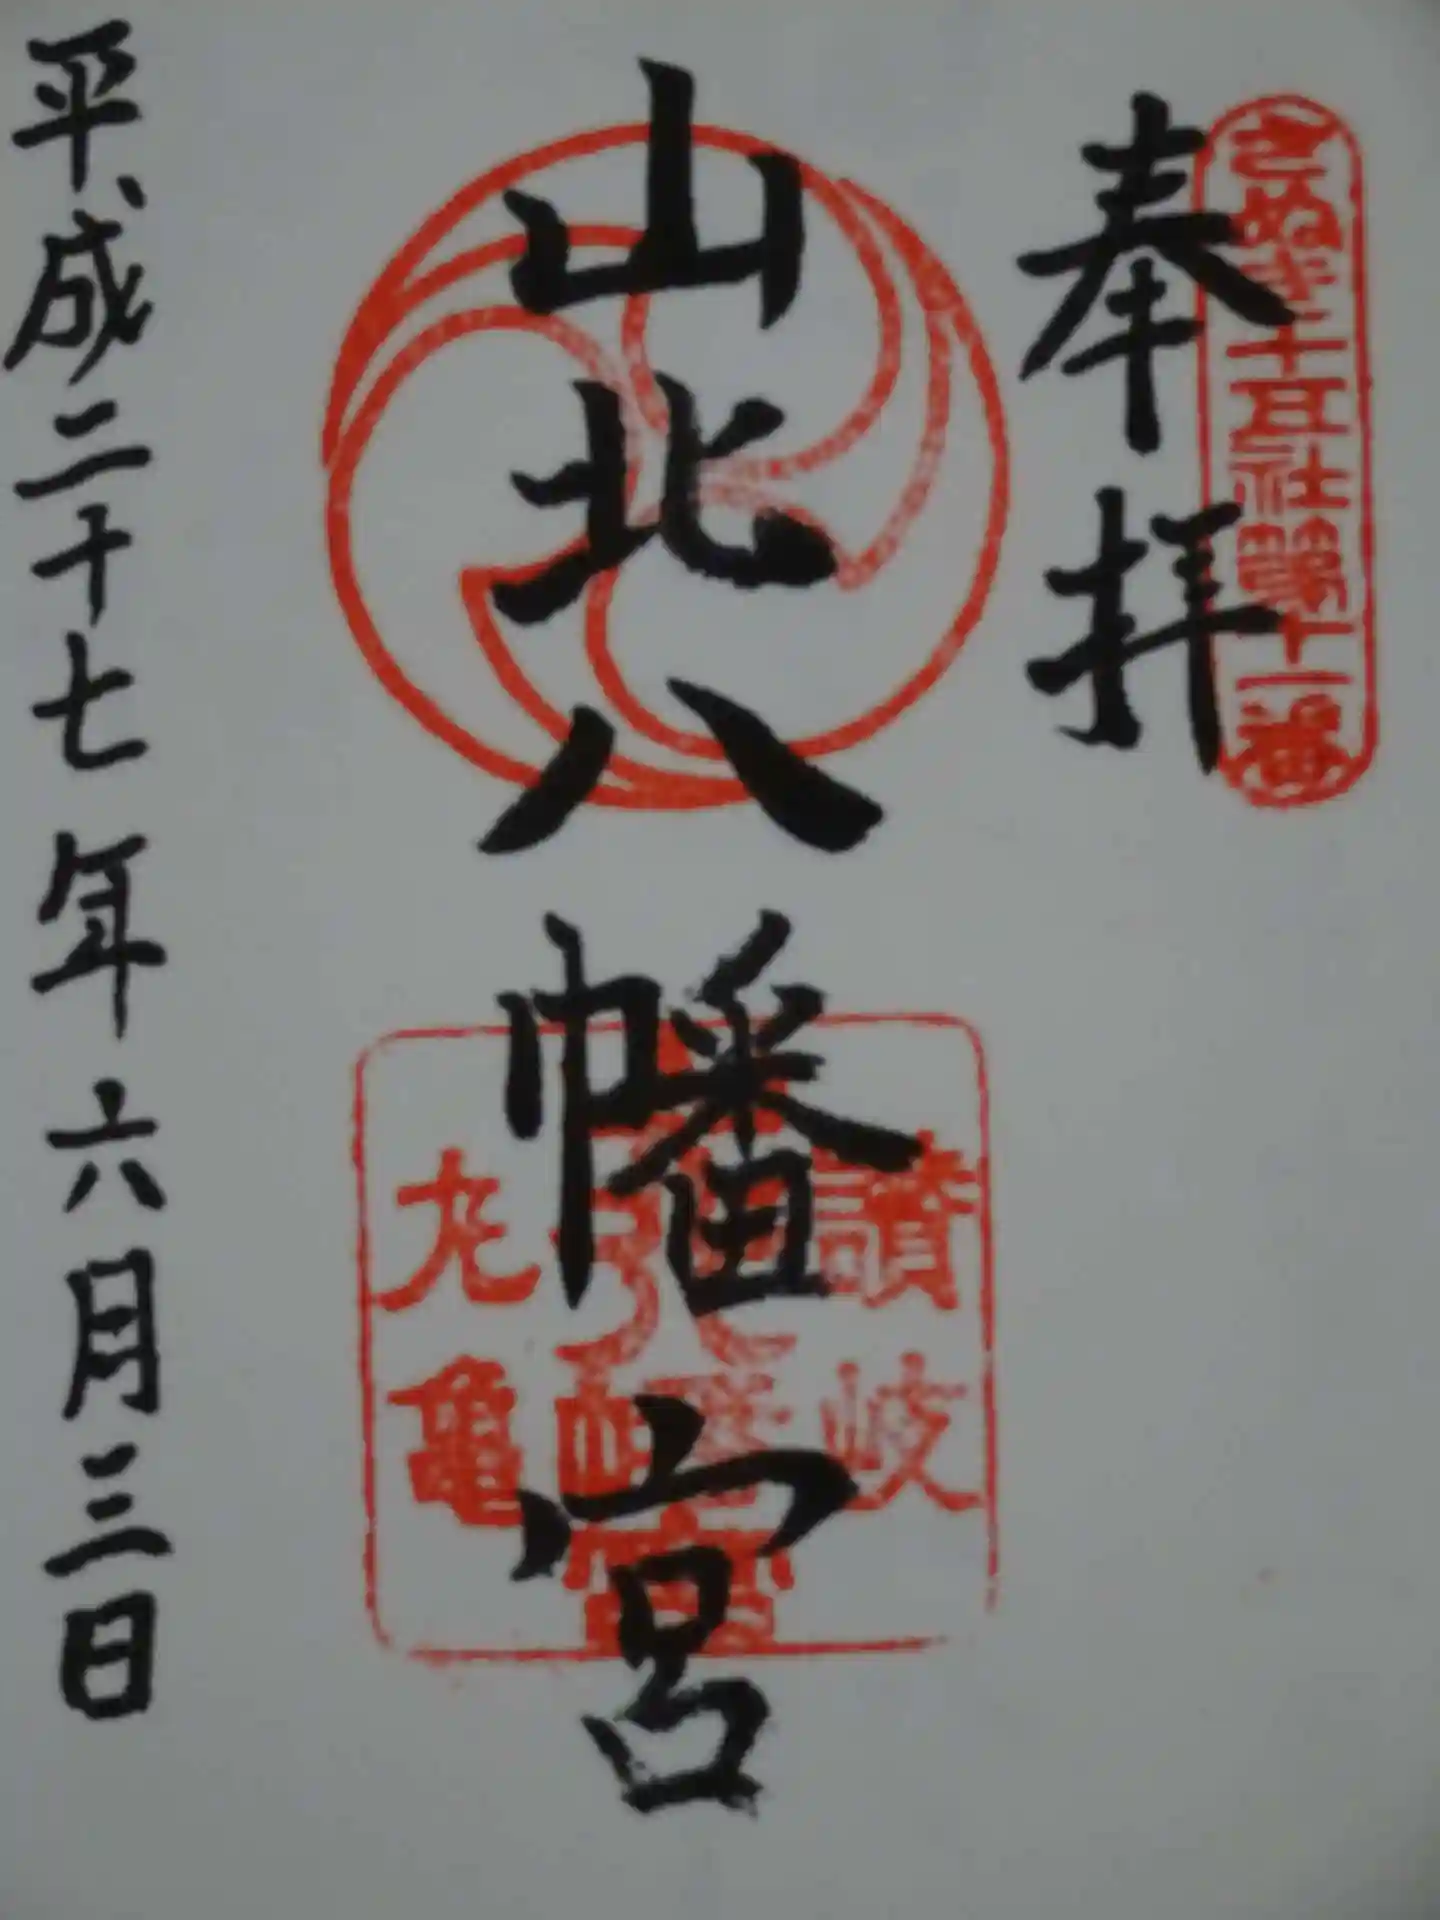 さぬき十五社第十一番
奉拝
山北八幡宮
讃岐
丸亀
平成二十七年六月三日